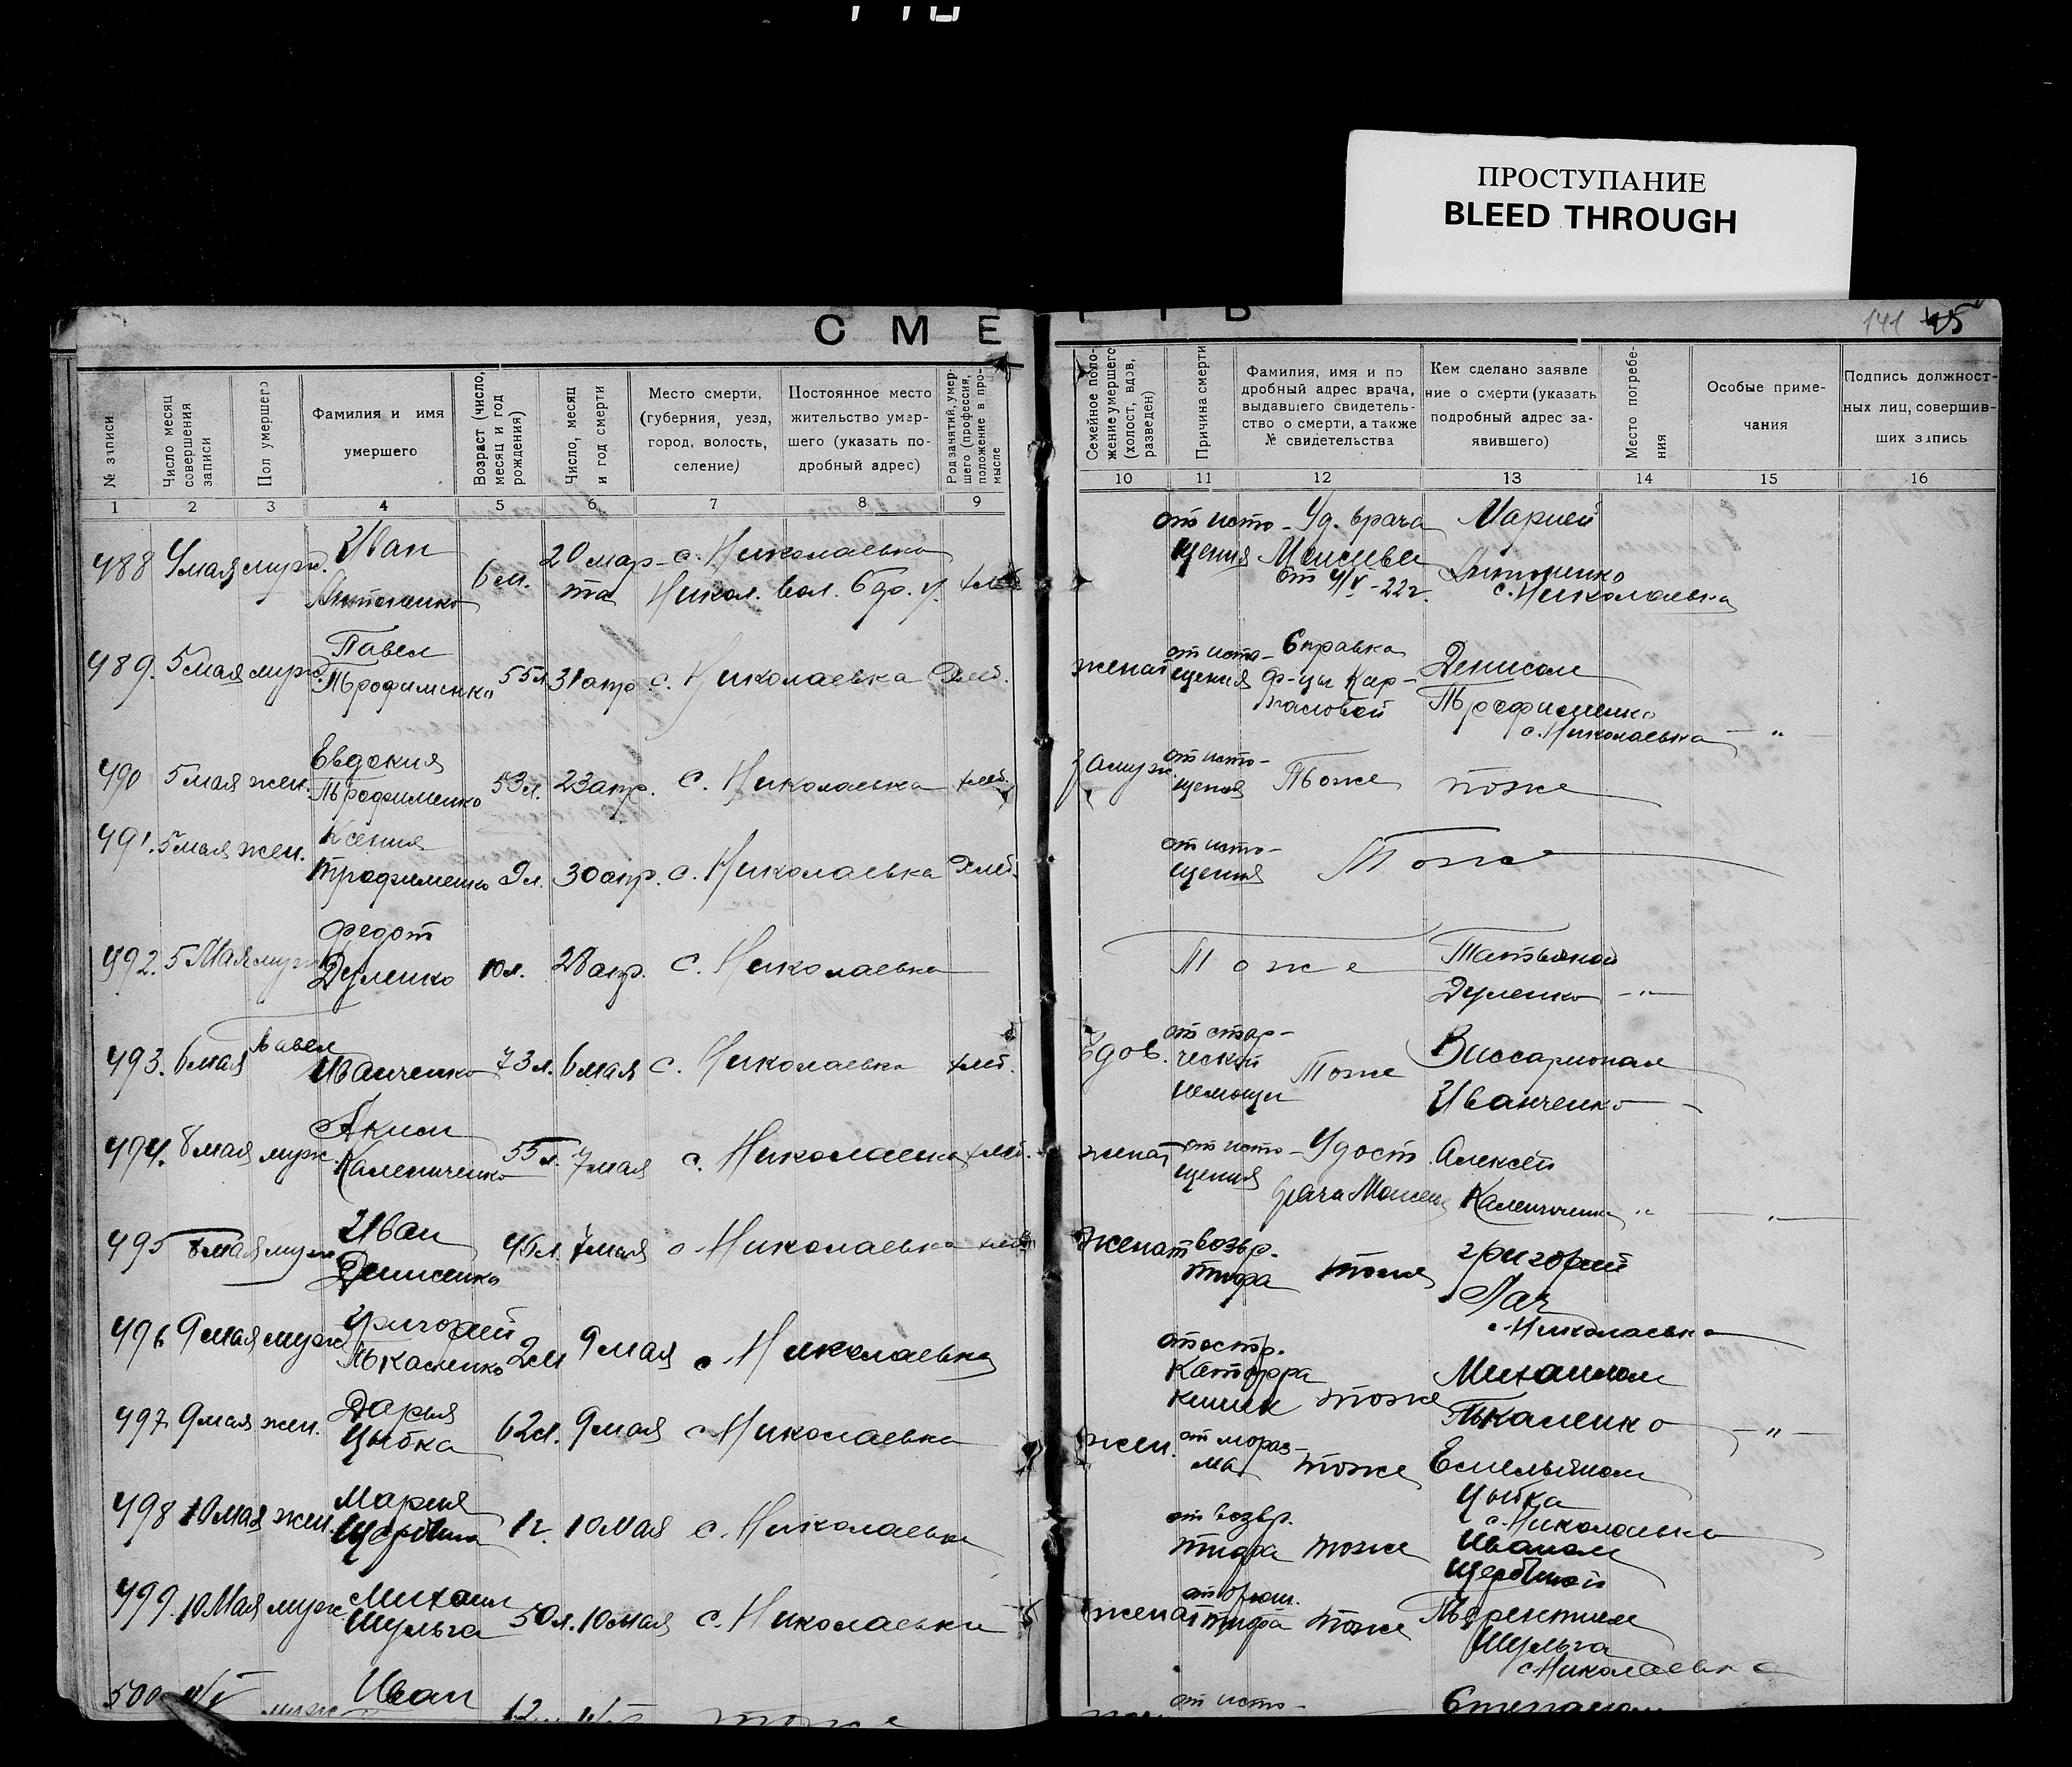 ПРОСТУПАНИЕ
BLEED THROUGH
С М Е Р Т Ь
141 45
№ записи
Число месяц совершения записи
Пол умершего
Фамилия и имя умершего
Возраст (число, месяц и год рождения)
Число, месяц и год смерти
Место смерти, (губерния, уезд, город, волость, селение)
Постоянное место жительство умершего (указать подробный адрес)
Род занятий, умершего (профессия, положение в промысле
Семейное положение умершего (холост, вдов, разведен)
Причина смерти
Фамилия, имя и по дробный адрес врача, выдавшего свидетельство о смерти, а также № свидетельства
Кем сделано заявле ние о смерти (указать подробный адрес заявившего)
Место погребения
Особые примечания
Подпись должностных лиц, совершивших запись
1 2 3 4 5 6 7 8 9 10 11 12 13 14 15 16
488 4 мая муж. Иван Антоненко 6 м. 20 марта с. Николаевка Никол. вол. Бдр. у. хлеб от истощения Уд. врача Моисеева от 4/V-22 г. Марией Антоненко с. Николаевка
489. 5 мая муж. Павел Трофименко 55 л 31 апр с. Николаевка хлеб. женат от истощения Справка ф-цы Денисом Трофименко с. Николаевка — " —
490 5 мая жен. Евдокия Трофименко 53 л. 23 апр. с. Николаевка хлеб. замуж. от истощения Тоже тоже
491. 5 мая жен. Ксения Трофименко 9 л. 30 апр. с. Николаевка хлеб. от истощения Тоже
492. 5 Мая муж Федот Дуленко 10 л. 28 апр. с. Николаевка Тоже Татьяной Дуленко — " —
493. 6 мая Павел Иванченко 73 л. 6 мая с. Николаевка хлеб. Вдов. от старческой немощи Тоже Виссарионом Иванченко
494. 8 мая муж. Аким Калениченко 55 л. 7 мая с. Николаевка хлеб. женат от истощения Удост врача Моисеев Алексей Калениченко " — " —
495 8 мая муж Иван Денисенко 45 л. 7 мая с Николаевка хлеб женат возвр. тифа тоже Григорий Лач с Николаевка
496 9 мая муж Григорий Ткаленко 2 м 9 мая с Николаевка от остр. катарра кишек тоже Михаилом Ткаленко — " —
497 9 мая жен. Дарья Цыбка 62 л. 9 мая с Николаевка жен. от маразма тоже Емельяном Цыбка с. Николаевка
498 10 мая жен. Мария Щербина 1 г. 10 мая с. Николаевка от возвр. тифа тоже Иваном Щербиной
499. 10 Мая муж. Михаил Шульга 50 л. 10 мая с. Николаевка женат от брюш. тифа тоже Терентием Шульга с Николаевка
500 11/V муж Иван 12 11/V тоже от исто- Степаном